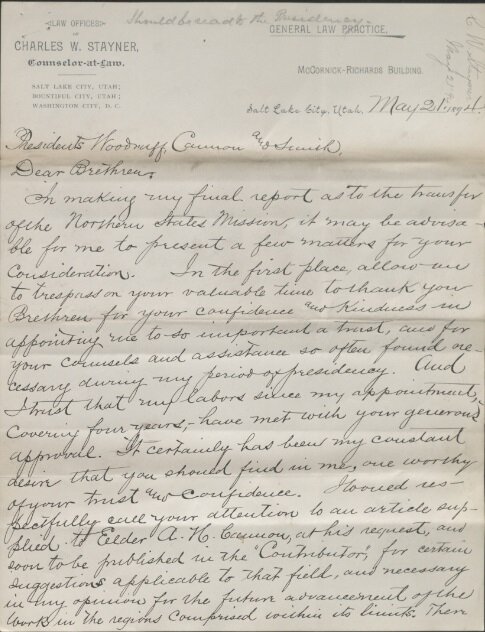 Should be read to the Presidency.
LAW OFFICES
OF
CHARLES W. STAYNER,
Counselor-at-Law.
SALT LAKE CITY, UTAH;
BOUNTIFUL CITY, UTAH;
WASHINGTON CITY, D. C.
GENERAL LAW PRACTICE.
McCORNICK-RICHARDS BUILDING.
C W Stayner
May 21
Salt Lake City, Utah, May 21st 1894.
Presidents Woodruff, Cannon and Smith,
Dear Brethren,
In making my final report as to the transfer
of the Northern States Mission, it may be advisa-
ble for me to present a few matters for your
Consideration. In the first place, allow me
to trespass on your valuable time to thank you
Brethren for your confidence and kindness in
appointing me to so important a trust, and for
your counsels and assistance so often found ne-
cessary during my period of presidency. And
I trust that my labors since my appointment,
Covering four years, have met with your generous
approval. It certainly has been my constant
desire that you should find in me, one worthy
of your trust and confidence. I would res-
pectfully call your attention to an article sup-
plied to Elder A. H. Cannon, at his request, and
soon to be published in the "Contributor", for certain
suggestions applicable to that field, and necessary
in my opinion for the future advancement of the
work in the regions comprised within its limits. There